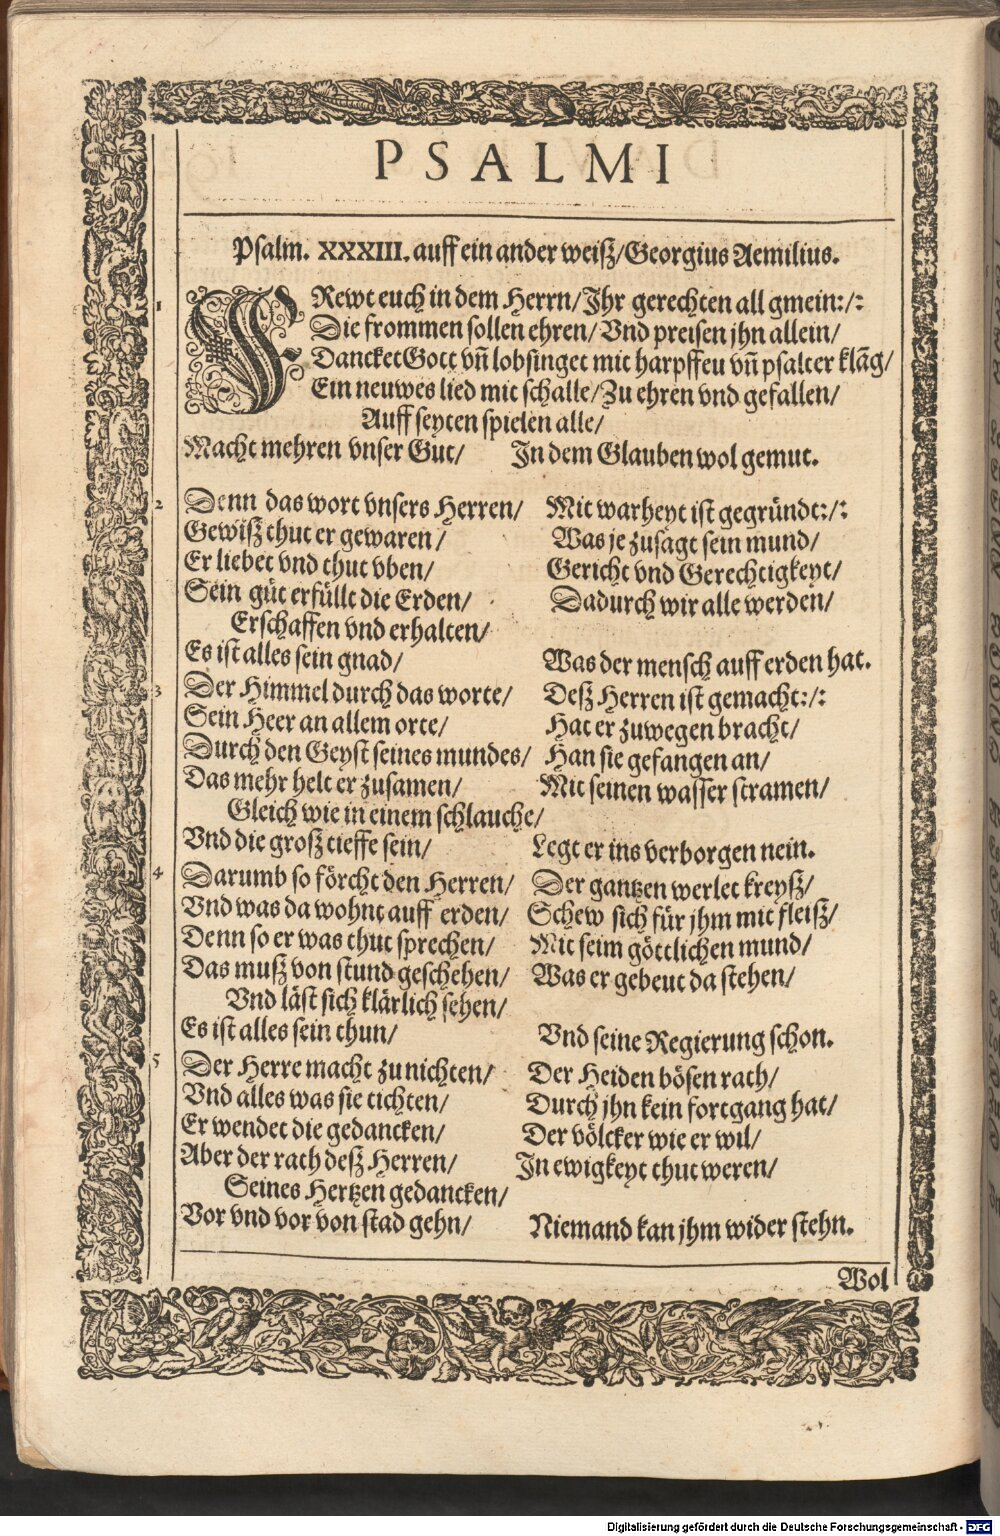 PSALMI
Psalm. XXXIII. auff ein ander weiß/ Georgius Aemilius.
1 FRewt euch in dem Herrn/ Jhr gerechten all gmein:/:
Die frommen sollen ehren/ Vnd preisen jhn allein/
Dancket Gott vñ lobsinget mit harpffeu vñ psalter klāg/
Ein neuwes lied mit schalle/ Zu ehren vnd gefallen/
Auff seyten spielen alle/
Macht mehren vnser Gut/ In dem Glauben wol gemut.
2 Denn das wort vnsers Herren/ Mit warheyt ist gegründt:/:
Gewiß thut er gewaren/ Was je zusagt sein mund/
Er liebet vnd thut vben/ Gericht vnd Gerechtigkeyt/
Sein güt erfüllt die Erden/ Dadurch wir alle werden/
Erschaffen vnd erhalten/
Es ist alles sein gnad/ Was der mensch auff erden hat.
3 Der Himmel durch das worte/ Deß Herren ist gemacht:/:
Sein Heer an allem orte/ Hat er zuwegen bracht/
Durch den Geyst seines mundes/ Han sie gefangen an/
Das mehr helt er zusamen/ Mit seinen wasser stramen/
Gleich wie in einem schlauche/
Vnd die groß tieffe sein/ Legt er ins verborgen nein.
4 Darumb so förcht den Herren/ Der gantzen werlet kreyß/
Vnd was da wohnt auff erden/ Schew sich für jhm mit fleiß/
Denn so er was thut sprechen/ Mit seim göttlichen mund/
Das muß von stund geschehen/ Was er gebeut da stehen/
Vnd läst sich klärlich sehen/
Es ist alles sein thun/ Vnd seine Regierung schon.
5 Der Herre macht zu nichten/ Der Heiden bösen rath/
Vnd alles was sie tichten/ Durch jhn kein fortgang hat/
Er wendet die gedancken/ Der völcker wie er wil/
Aber der rath deß Herren/ In ewigkeyt thut weren/
Seines Hertzen gedancken/
Vor vnd vor von stad gehn/ Niemand kan jhm wider stehn.
Wol
Digitalisierung gefördert durch die Deutsche Forschungsgemeinschaft - DFG